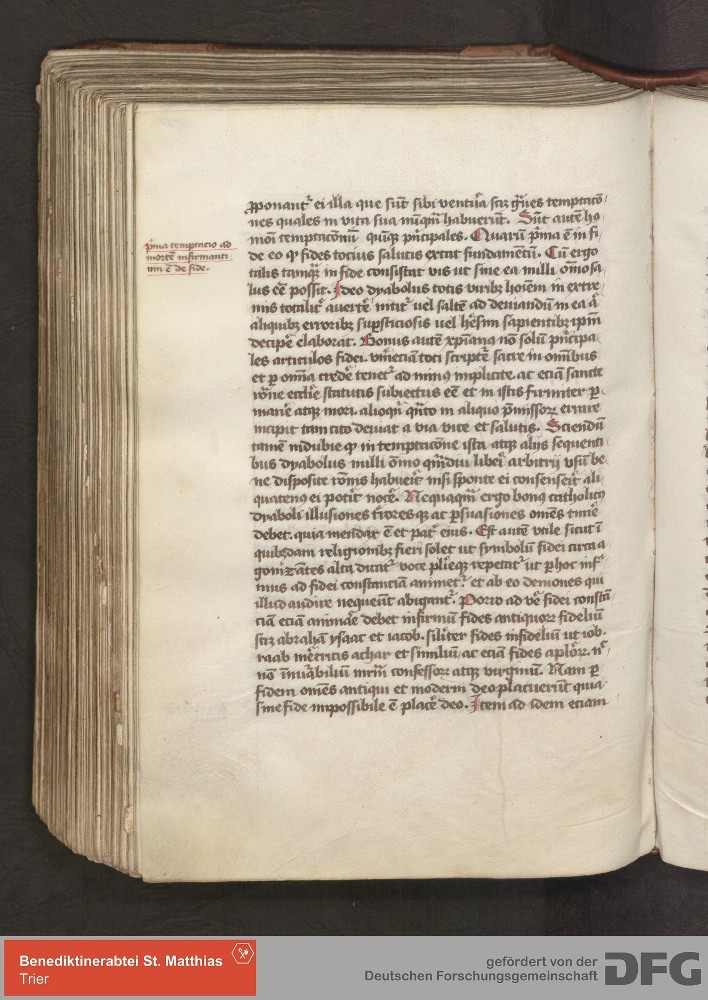 p̄ma temptacio ad
mortē infirmanti
um ē de fide.
ꝓponant᷑ ei illa que sūt sibi ventu᷑a scꝫ g᷑ues temptacō
nes quales in vita sua nūqm̄ habuerūt. Sūt autē ho
moī temptaconū quīqꝫ p᷑ncipales. Quarū p᷑ma ē in fi
de eo ꝙ fides tocius salutis extat fundamētū. Cū ergo
talis tamqꝫ in fide consistat vis ut sine ea nulli om̄o sa
lus eē possit. Ideo dyabolus totis viribꝫ hoīem in extre
mis totalit᷑ auert᷑e nitit᷑ uel saltē ad deuiandū in ea ā
aliquibꝫ erroribꝫ suꝑsticiosis uel h᷑esim sapientibꝫ ip̄m
decip᷑e elaborat. Bonus autē xp̄ianus nō solū p᷑ncipa
les articulos fidei. vm̄eciam toti scriptu᷑e sacre in om̄ibus
et ꝑ om̄ia cred᷑e tenet᷑ ad minus implicite. ac eciam sancte
rōne eccl̄ie statutis subiectus eē et in istis firmiter ꝑ
man᷑e atqꝫ mori. alioqn̄ qn̄to in aliquo p᷑missorꝝ errare
incipit tam cito deuiat a via vite et salutis. Sciendū
tamē indubie ꝙ in temptacōne ista atqꝫ alijs sequenti
bus dyabolus nulli om̄o qm̄diu liber᷑ arbitrij vsū be
ne disposite rōnis habuerit nisi sponte ei consenserit ali
quatenus ei potit᷑ noc᷑e. Nequaqm̄ ergo bonus catholicus
dyaboli illusiones t᷑rores qꝫ ac ꝑsuasiones om̄es time᷑
debet. quia mendax ē et pat᷑ eius. Est autē vtile sicut ī
quibꝫdam religionibꝫ fieri solet ut symbolū fidei circa a
gonizātes alta dicat᷑ voce pl̄ieqꝫ repetat᷑ ut ꝑ hoc inf᷑
mus ad fidei constanciā animet᷑. et ab eo demones qui
illud audire nequeūt abigant᷑. Porro ad v᷑e fidei constā
ciā eciā animare debet infirmū fides antiquorꝝ fideliū
scꝫ abrahā ysaac et iacob. sil᷑iter fides infideliū ut iob.
raab m᷑etricis achar et similiū ac eciā fides aplōrꝝ. n᷑c
nō īnum᷑abiliū mr̄m confessorꝝ atqꝫ virginū. Nam ꝑ
fidem om̄es antiqui et moderni deo placuerūt quia
sine fide impossibile ē plac᷑e deo. Item ad idem eciam
Benediktinerabtei St. Matthias
Trier
gefördert von der
Deutschen Forschungsgemeinschaft
DFG